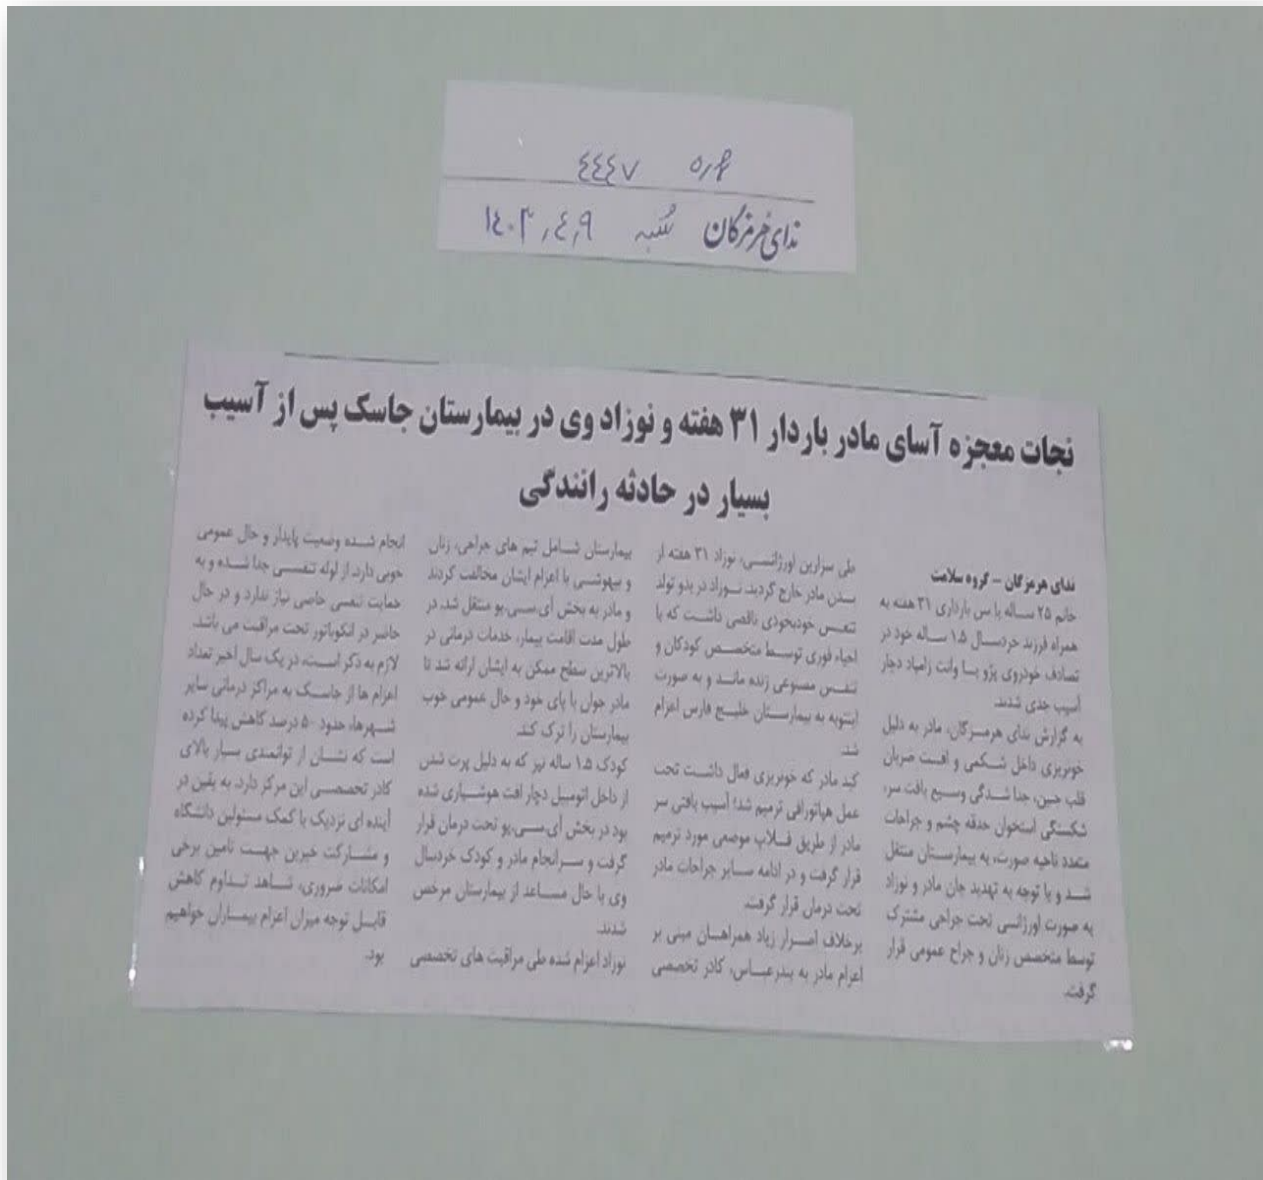 ٤٤٤٧
ندای هرمزگان شنبه ١٤٠٣,٤,٩
نجات معجزه آسای مادر باردار ۳۱ هفته و نوزاد وی در بیمارستان جاسک پس از آسیب
بسیار در حادثه رانندگی
ندای هرمزگان - گروه سلامت
خانم ۲۵ ساله با سن بارداری ۳۱ هفته به
همراه فرزند خردسال ۱.۵ ساله خود در
تصادف خودروی پژو با وانت زامیاد دچار
آسیب جدی شدند.
به گزارش ندای هرمزگان، مادر به دلیل
خونریزی داخل شکمی و افت ضربان
قلب جنین، جدا شدگی وسیع بافت سر،
شکستگی استخوان حدقه چشم و جراحات
متعدد ناحیه صورت، به بیمارستان منتقل
شد و با توجه به تهدید جان مادر و نوزاد
به صورت اورژانسی تحت جراحی مشترک
توسط متخصص زنان و جراح عمومی قرار
گرفت.
طی سزارین اورژانسی، نوزاد ۳۱ هفته از
بدن مادر خارج گردید. نوزاد در بدو تولد
تنفس خودبخودی ناقصی داشت که با
احیاء فوری توسط متخصص کودکان و
تنفس مصنوعی زنده ماند و به صورت
اینتوبه به بیمارستان خلیج فارس اعزام
شد.
کبد مادر که خونریزی فعال داشت تحت
عمل هپاتورافی ترمیم شد؛ آسیب بافتی سر
مادر از طریق فلاپ موضعی مورد ترمیم
قرار گرفت و در ادامه سایر جراحات مادر
تحت درمان قرار گرفت.
برخلاف اصرار زیاد همراهان مبنی بر
اعزام مادر به بندرعباس، کادر تخصصی
بیمارستان شامل تیم های جراحی، زنان
و بیهوشی با اعزام ایشان مخالفت کردند
و مادر به بخش آی‌سی‌یو منتقل شد. در
طول مدت اقامت بیمار، خدمات درمانی در
بالاترین سطح ممکن به ایشان ارائه شد تا
مادر جوان با پای خود و حال عمومی خوب
بیمارستان را ترک کند.
کودک ۱.۵ ساله نیز که به دلیل پرت شدن
از داخل اتومبیل دچار افت هوشیاری شده
بود در بخش آی‌سی‌یو تحت درمان قرار
گرفت و سرانجام مادر و کودک خردسال
وی با حال مساعد از بیمارستان مرخص
شدند.
نوزاد اعزام شده طی مراقبت های تخصصی
انجام شده وضعیت پایدار و حال عمومی
خوبی دارد. از لوله تنفسی جدا شده و به
حمایت تنفسی خاصی نیاز ندارد و در حال
حاضر در انکوباتور تحت مراقبت می باشد.
لازم به ذکر است، در یک سال اخیر تعداد
اعزام ها از جاسک به مراکز درمانی سایر
شهرها، حدود ۵۰ درصد کاهش پیدا کرده
است که نشان از توانمندی بسیار بالای
کادر تخصصی این مرکز دارد. به یقین در
آینده ای نزدیک با کمک مسئولین دانشگاه
و مشارکت خیرین جهت تامین برخی
امکانات ضروری، شاهد تداوم کاهش
قابل توجه میزان اعزام بیماران خواهیم
بود.